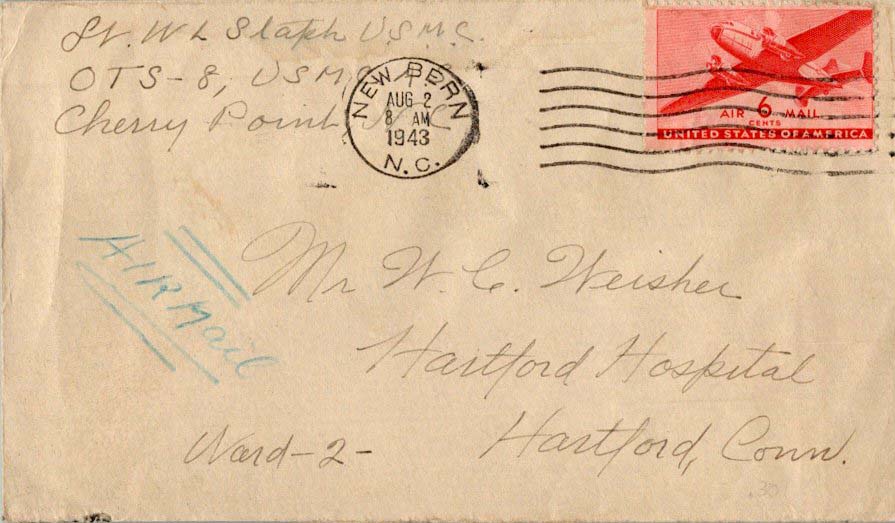 Lt. W L Staph U.S.M.C.
OTS-8, USMCAS
Cherry Point, N.C.
NEW BERN
1
AUG 2
8 AM
1943
N.C.
AIR 6 MAIL
CENTS
UNITED STATES OF AMERICA
AIR Mail
Mr W. C. Weisher
Hartford Hospital
Ward-2-
Hartford, Conn.
.30